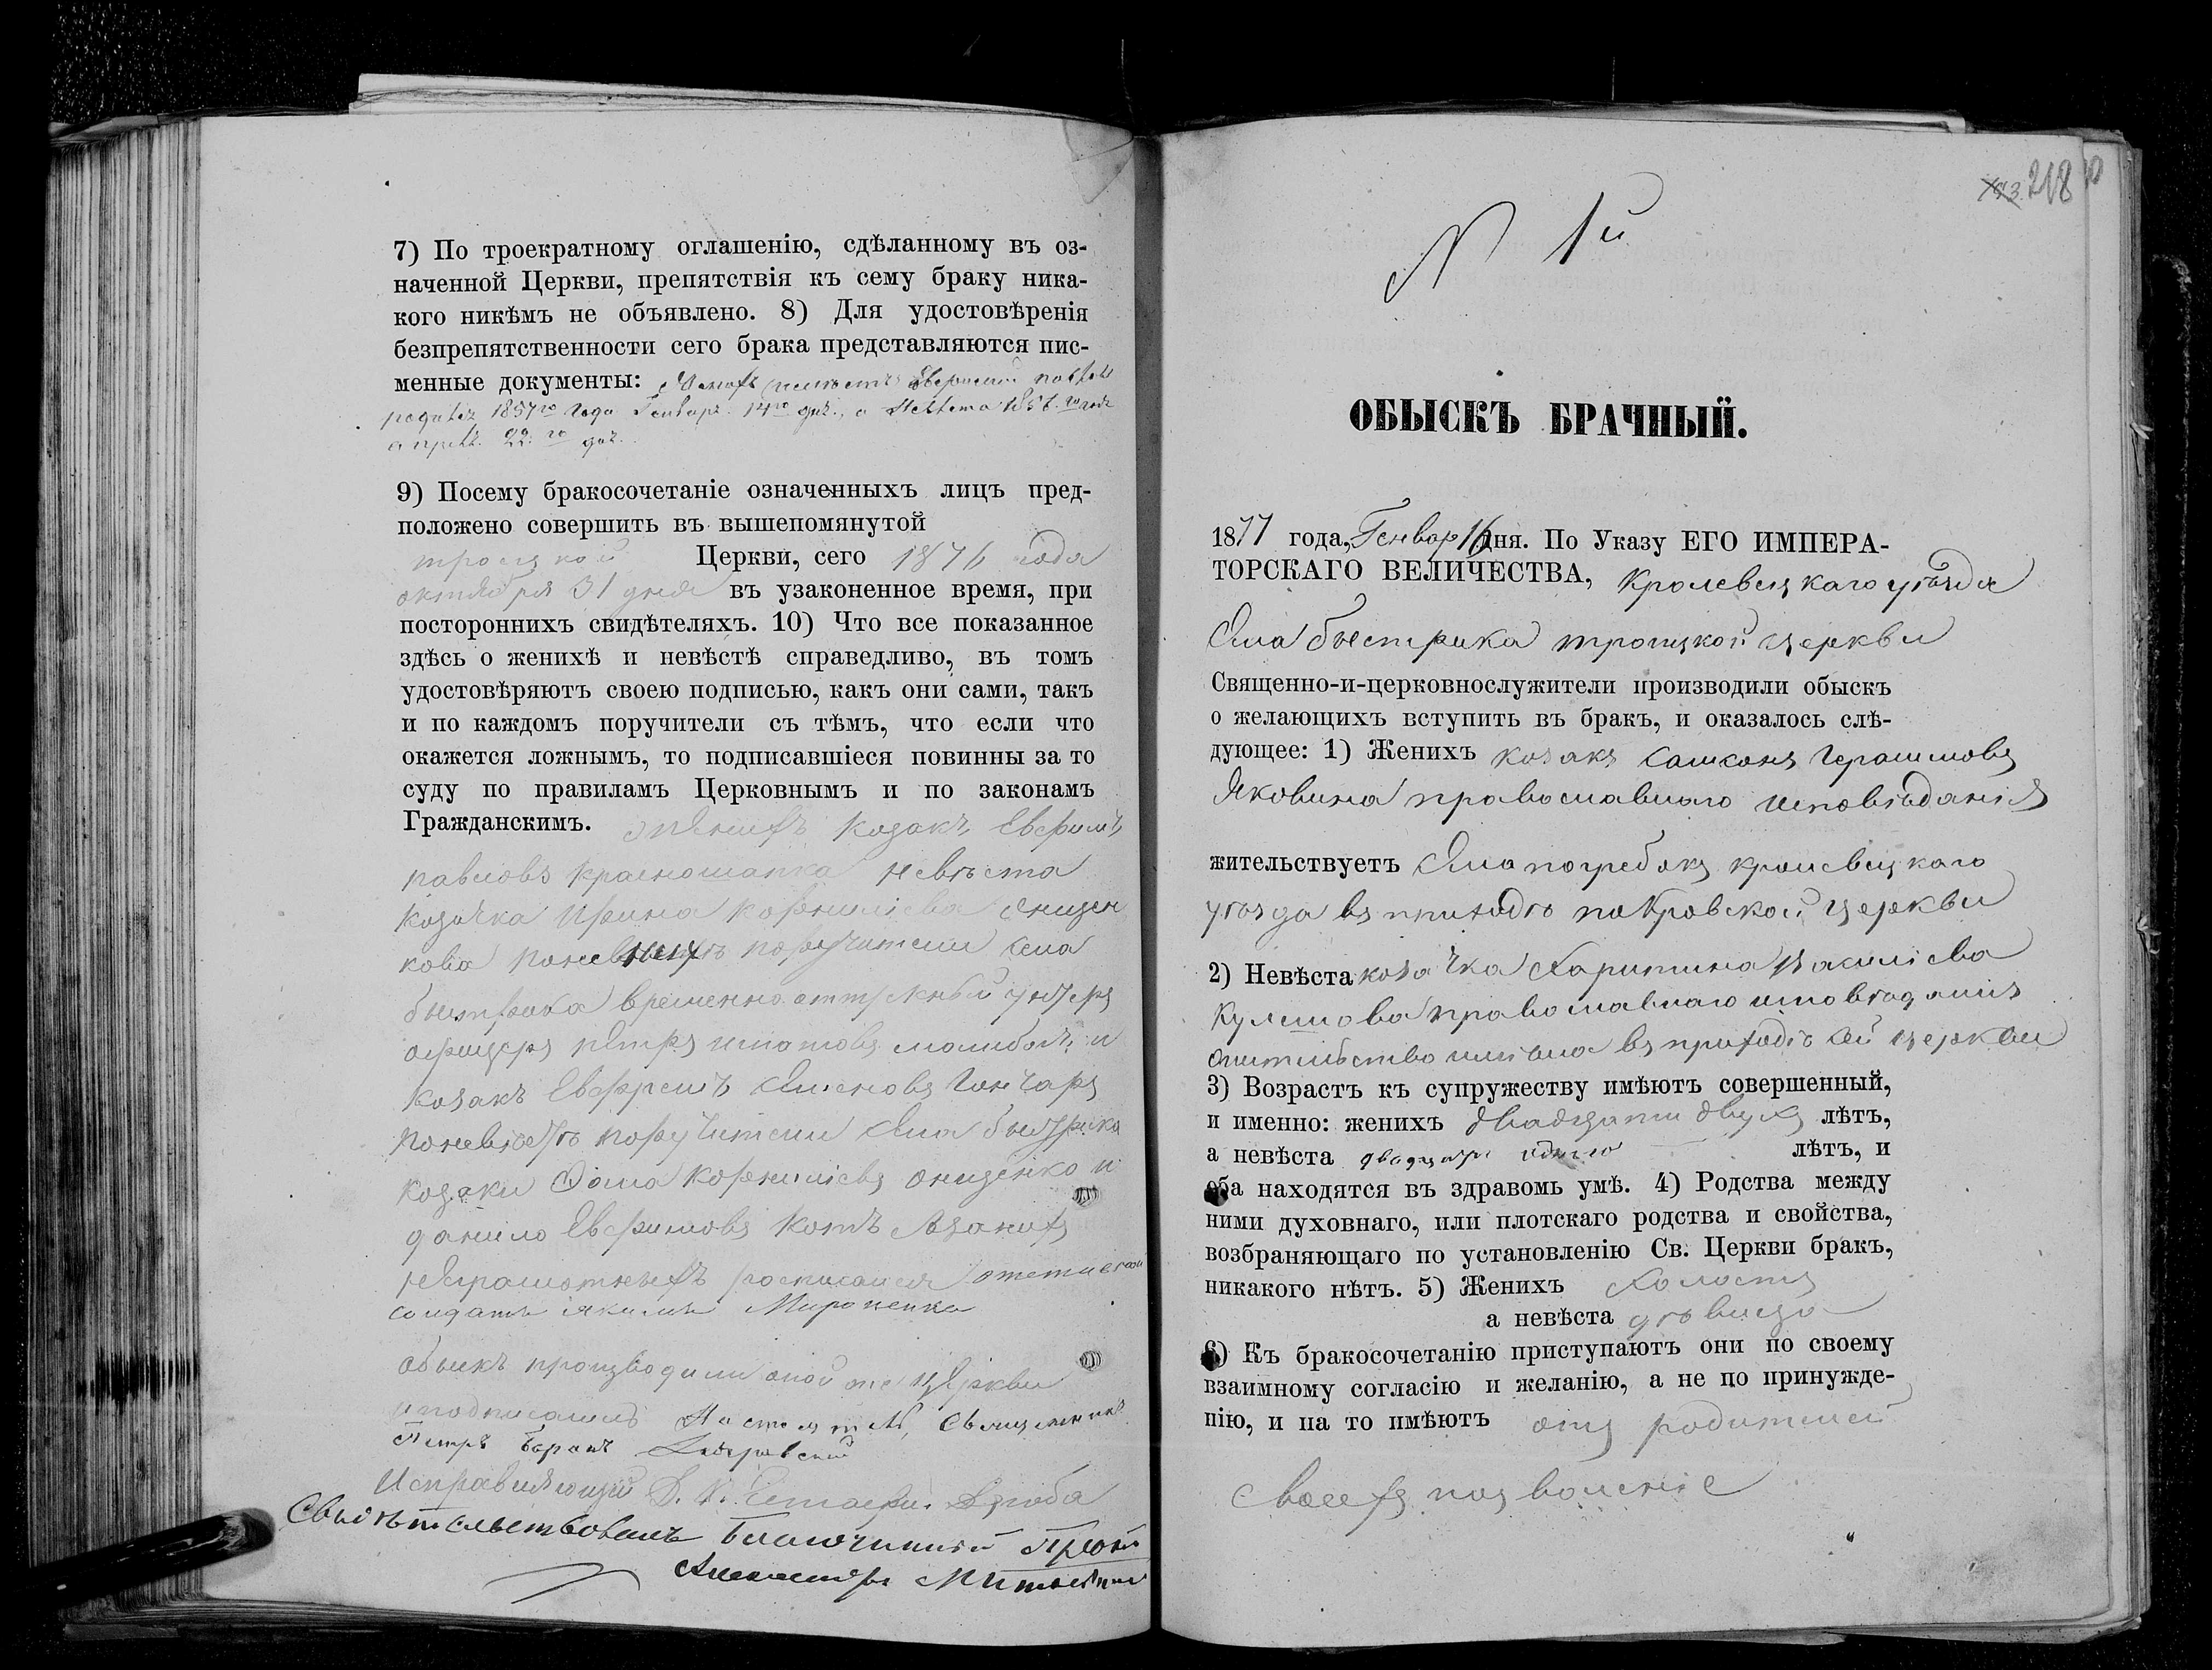 7) По троекратному оглашенію, сдѣланному въ оз-
наченной Церкви, препятствія къ сему браку ника-
кого никѣмъ не объявлено. 8) Для удостовѣренія
безпрепятственности сего брака представляются пис-
менные документы:
родился 1857го года Генваря 14го дня, а невѣста года
апрѣля 22го дня.
9) Посему бракосочетаніе означенныхъ лицъ пред-
положено совершить въ вышепомянутой
троицкой Церкви, сего 1876 года
октября 31 дня въ узаконенное время, при
постороннихъ свидѣтеляхъ. 10) Что все показанное
здѣсь о женихѣ и невѣстѣ справедливо, въ томъ
удостовѣряютъ своею подписью, какъ они сами, такъ
и по каждомъ поручители съ тѣмъ, что если что
окажется ложнымъ, то подписавшіеся повинны за то
суду по правиламъ Церковнымъ и по законамъ
Гражданскимъ. женихъ козакъ
павловъ красношапка невѣста
козачка Ирина Корниліева
поручители села
быстрика временно отпускный унтеръ
офицеръ петръ игнатовъ и
козакъ Гончаръ
поручители села быстрика
козаки Фома Корниліевъ онищенко и
данило Евфимовъ котъ
неграмотныхъ росписался отставной
солдатъ якимъ Мироненко
обыскъ производили оной же церкви
и подписались Настоятель, Священникъ
Петръ
Исправляющій
Свидѣтельствовалъ Благочинный
Александръ
218
N 1й
ОБЫСКЪ БРАЧНЫЙ.
1877 года, Генвар 16 дня. По Указу ЕГО ИМПЕРА-
ТОРСКАГО ВЕЛИЧЕСТВА, Кролевецкаго уѣзда
Села быстрика троицкой церкви
Священно-и-церковнослужители производили обыскъ
о желающихъ вступить въ бракъ, и оказалось слѣ-
дующее: 1) Женихъ козакъ самсонъ Герасимовъ
Яковина православнаго исповѣданія
жительствуетъ Села погребокъ кролевецкаго
уѣзда въ приходѣ покровской церкви
2) Невѣста козачка Харитина василіева
православнаго исповѣданія
жительство имѣла въ приходѣ сей церкви
3) Возрастъ къ супружеству имѣютъ совершенный,
и именно: женихъ двадцати двухъ лѣтъ,
а невѣста двадцати одного лѣтъ, и
оба находятся въ здравомъ умѣ. 4) Родства между
ними духовнаго, или плотскаго родства и свойства,
возбраняющаго по установленію Св. Церкви бракъ,
никакого нѣтъ. 5) Женихъ холостъ
а невѣста дѣвица
6) Къ бракосочетанію приступаютъ они по своему
взаимному согласію и желанію, а не по принужде-
нію, и на то имѣютъ отъ родителей
своихъ позволеніе